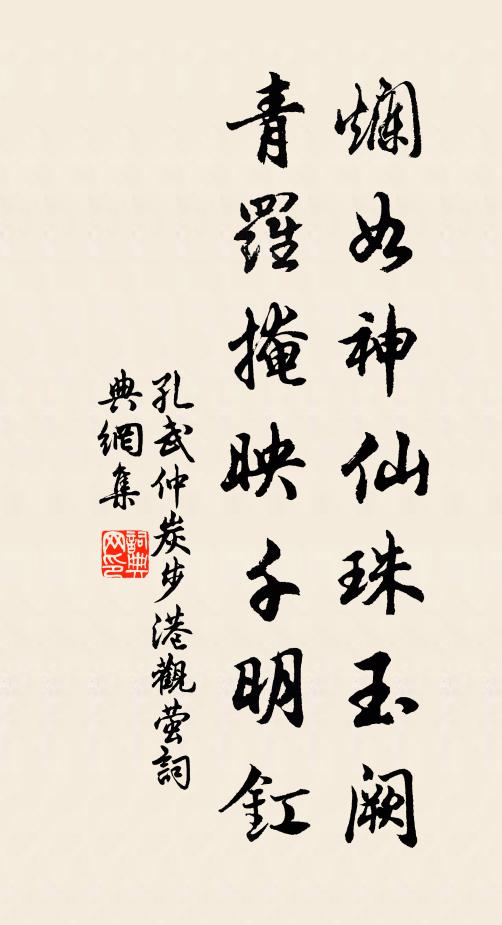 爛如神仙珠玉闕
青羅掩映千明釭
孔武仲炭步港觀萤詞
典網集
詞典
网印